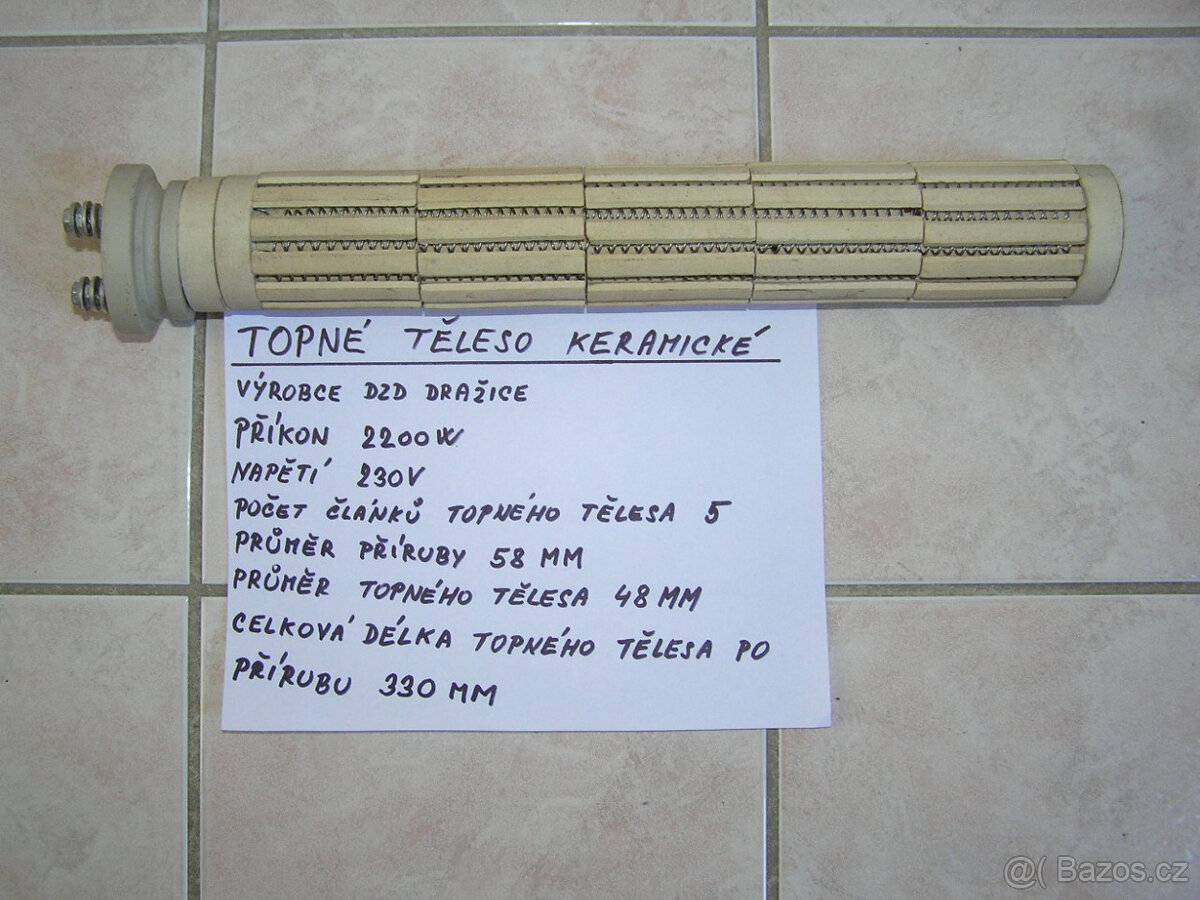 TOPNÉ TĚLESO KERAMICKÉ
VÝROBCE DZD DRAŽICE
PŘÍKON 2200W
NAPĚTÍ 230V
POČET ČLÁNKŮ TOPNÉHO TĚLESA 5
PRŮMĚR PŘÍRUBY 58 MM
PRŮMĚR TOPNÉHO TĚLESA 48 MM
CELKOVÁ DÉLKA TOPNÉHO TĚLESA PO
PŘÍRUBU 330 MM
@( Bazos.cz